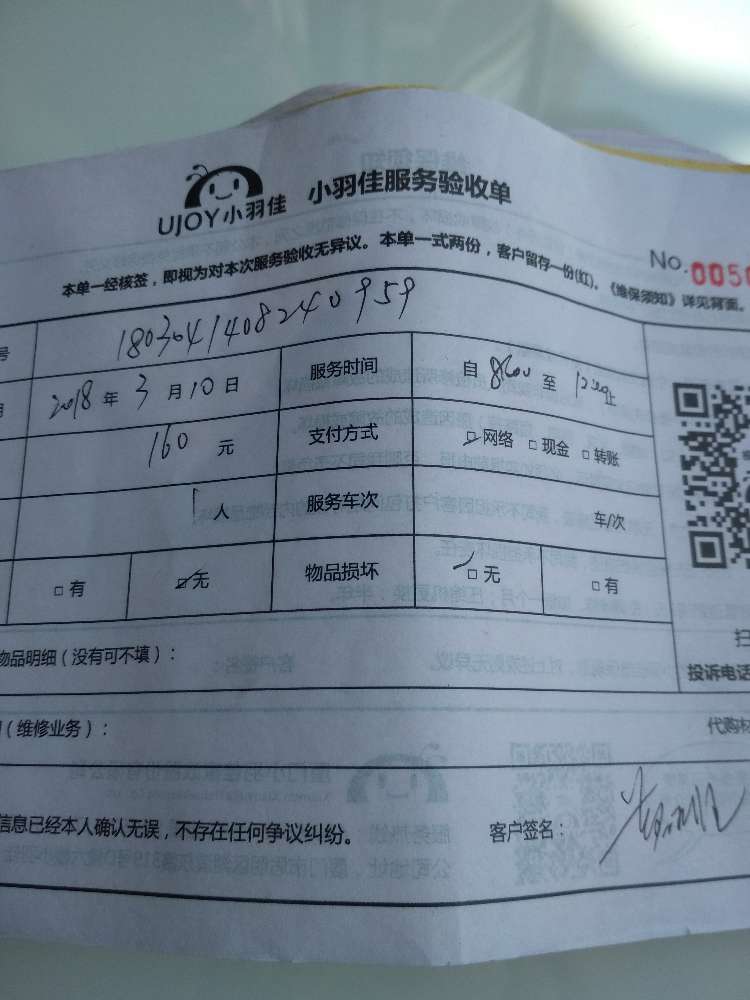 UJOY小羽佳 小羽佳服务验收单
No.005
本单一经核签，即视为对本次服务验收无异议。本单一式两份，客户留存一份(红)。《维保须知》详见背面。
号 1803041408240959
2018年3月10日 服务时间 自 至 止
160元 支付方式 ☑网络 □现金 □转账
1人 服务车次 车/次
□有 ☑无 物品损坏 ☑无 □有
物品明细（没有可不填）：
扫
投诉电话
（维修业务）： 代购材
信息已经本人确认无误，不存在任何争议纠纷。 客户签名：